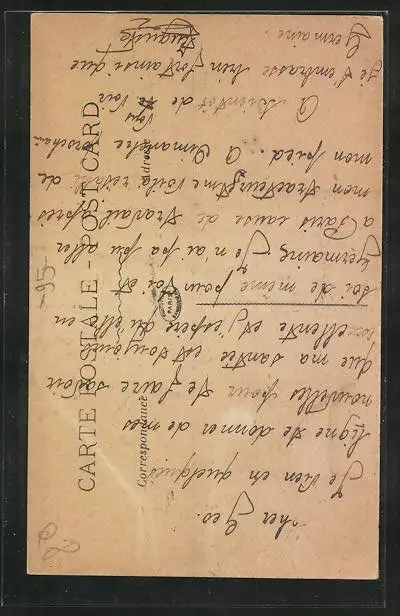 cher Geo.
Je vien en quelques
ligne te donner de mes
nouvelles pour te faire savoir
que ma santée est toujours
excellente et j'espère qu'elle en
soi de même pour toi et
Germaine, Je n'ai pa pu aller
a Paris cause de travail après
mon tracteur, me voila rétabli de
mon pied. A Dimanche prochain
Vous
A bientôt de te voir
je t'embrasse bien fort ainsi que
Germaine.
Auguste
CARTE POSTALE - POST CARD
Correspondance
Adresse
PARIS
-95-